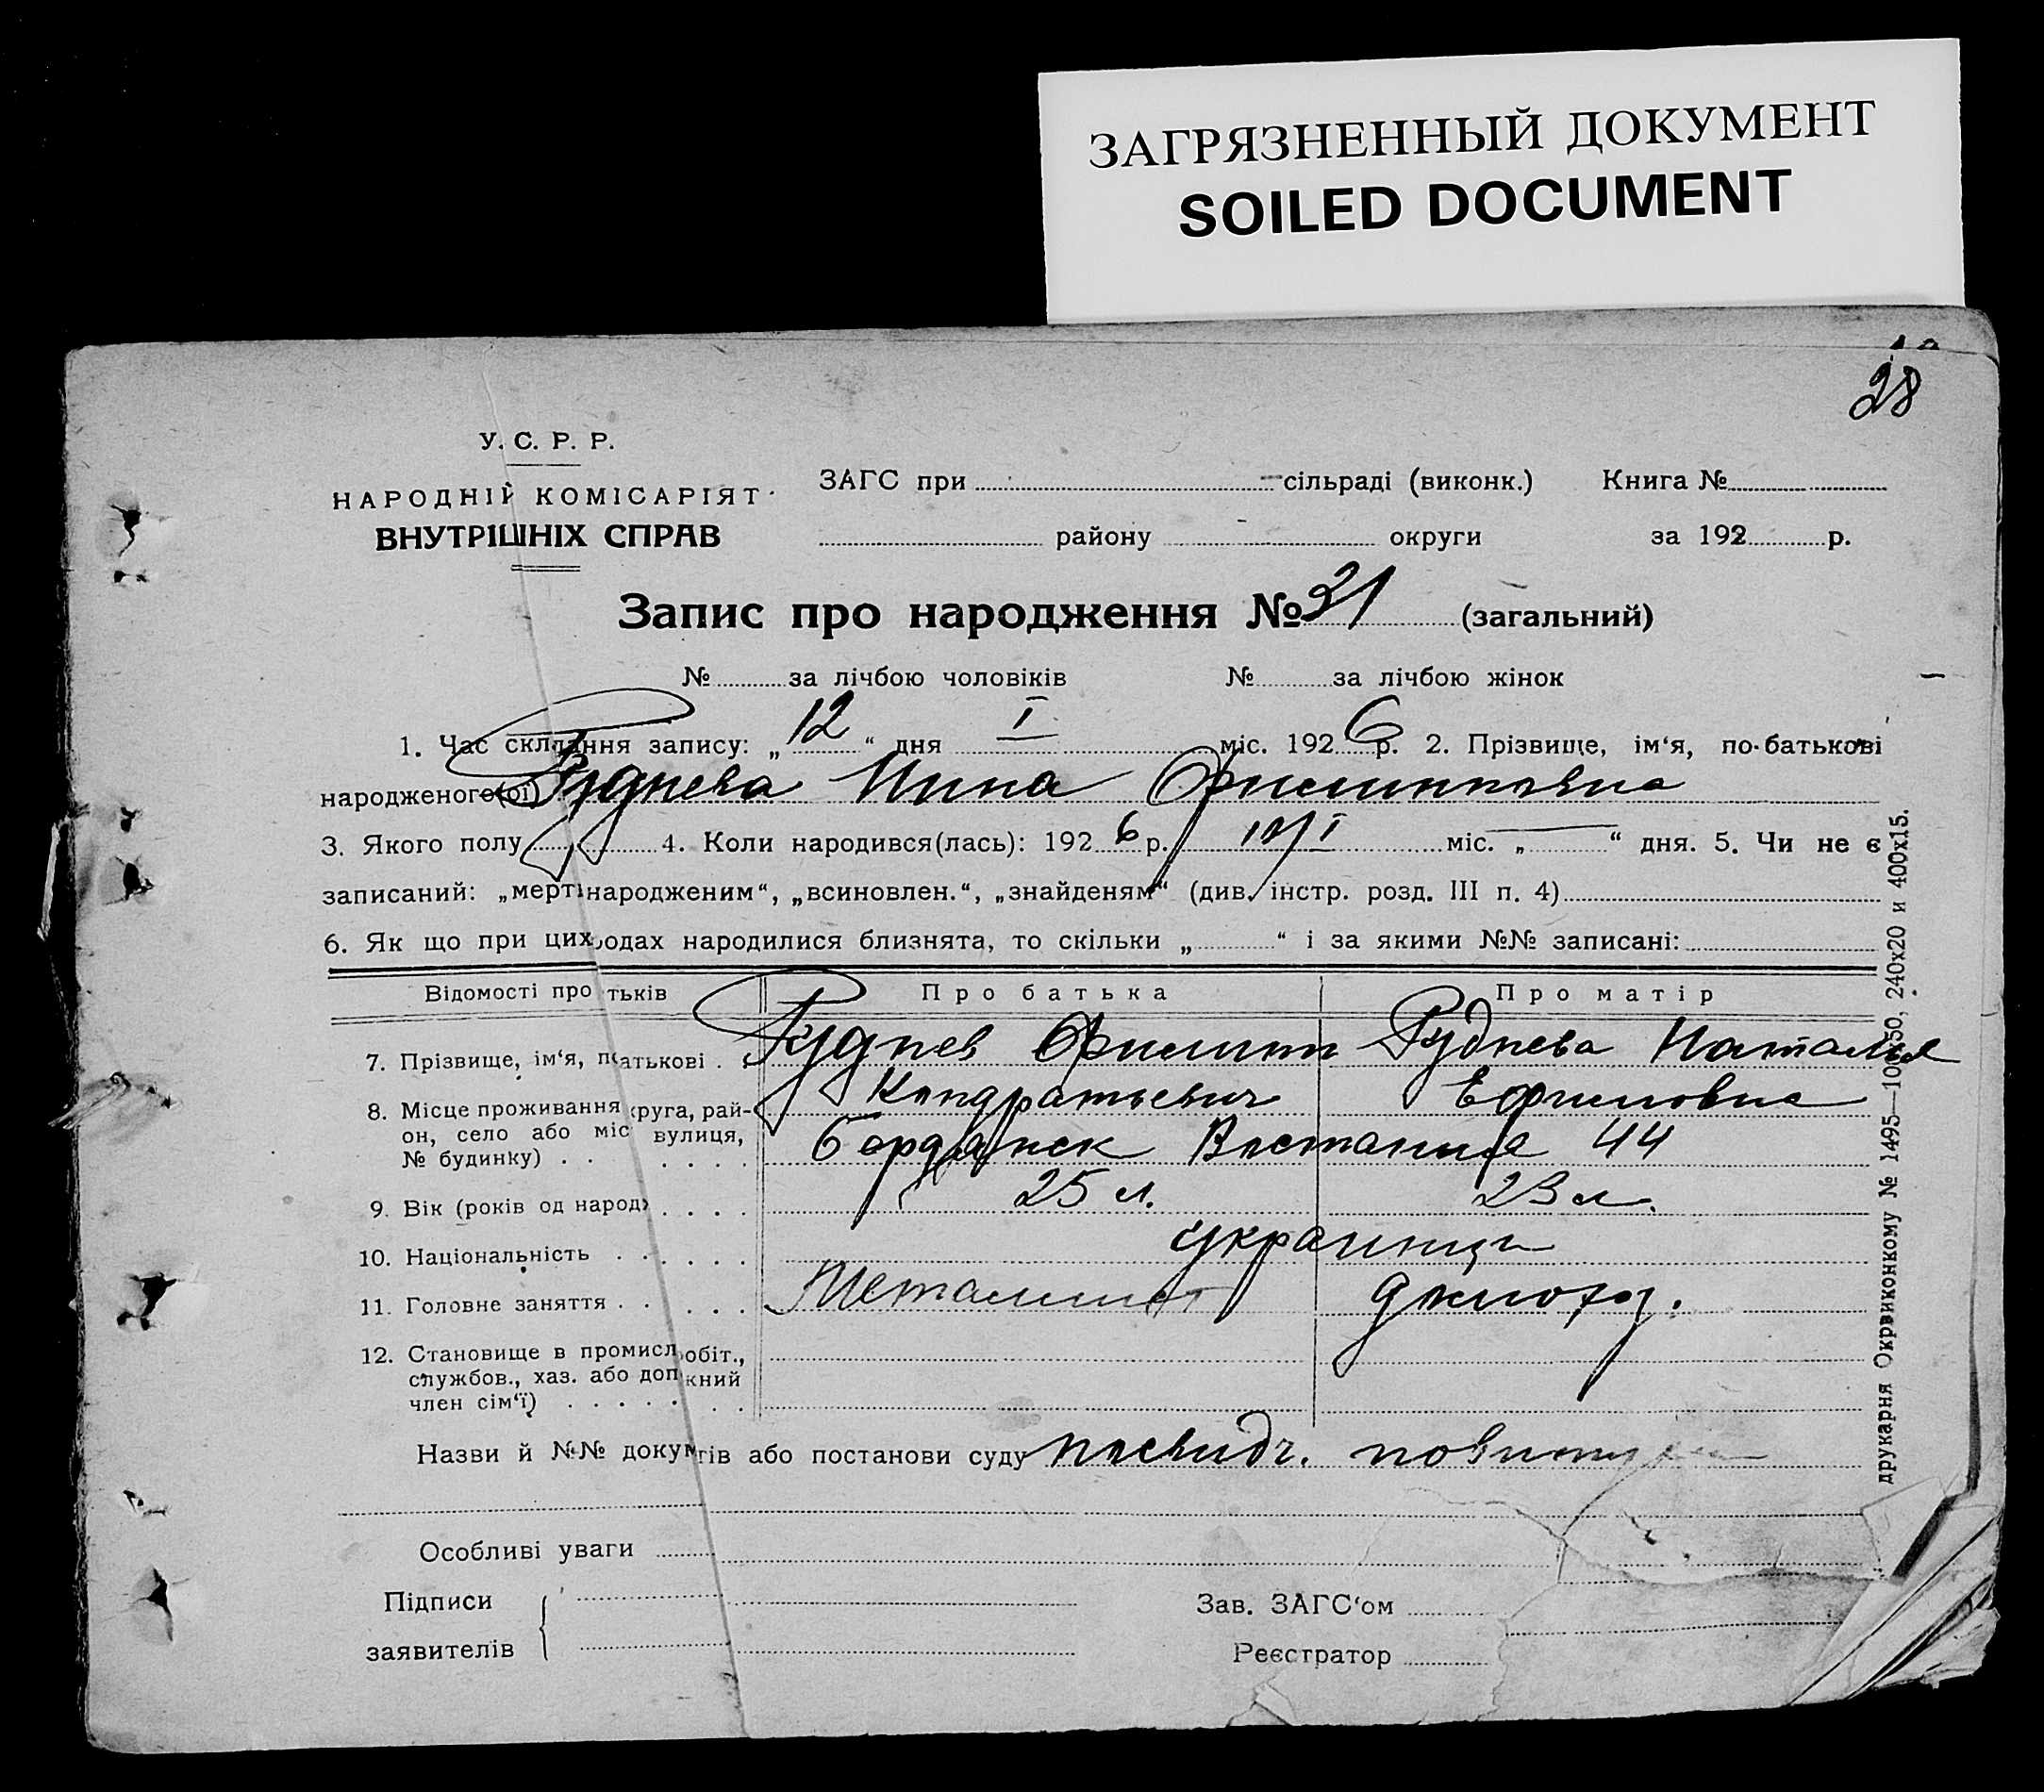 ЗАГРЯЗНЕННЫЙ ДОКУМЕНТ
SOILED DOCUMENT
28
У. С. Р. Р.
НАРОДНІЙ КОМІСАРІЯТ
ВНУТРІШНІХ СПРАВ
ЗАГС при сільраді (виконк.) Книга №
району округи за 192 р.
Запис про народження № 31 (загальний)
№ за лічбою чоловіків № за лічбою жінок
1. Час складання запису: „12“ дня I міс. 1926 р. 2. Прізвище, ім‘я, по-батькові
народженого(ої) Руднева Нина Филипповна
3. Якого полу 4. Коли народився(лась): 1926 р. I міс. „ “ дня. 5. Чи не є
записаний: „мерт народженим“, „всиновлен.“, „знайденям“ (див. інстр. розд. III п. 4)
6. Як що при цих родах народилися близнята, то скільки „ “ і за якими №№ записані:
Відомості про тьків Про батька Про матір
7. Прізвище, ім‘я, п атькові Руднев Филипп Руднева Наталья
Кондратьевич Ефимовна
8. Місце проживання круга, рай-
он, село або міс вулиця,
№ будинку) Бердянск Востания 44
9. Вік (років од народ 25 л. 23 л.
10. Національність украинцы
11. Головне заняття Металлист домохоз.
12. Становище в промисл обіт.,
службов., хаз. або доп жний
член сім‘ї)
Назви й №№ докум тів або постанови суду посвидч. повитухи
Особливі уваги
Підписи Зав. ЗАГС‘ом
заявителів Реєстратор
друкарня Окрвиконкому № 1495—100х50, 240х20 и 400х15.